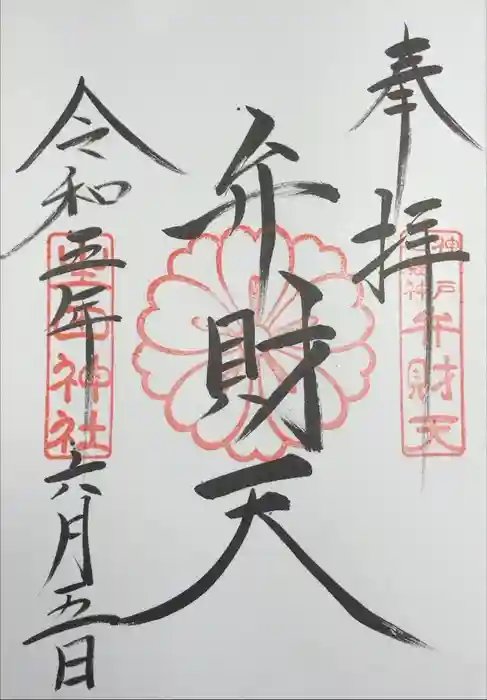 奉拝
弁財天
令和五年六月五日
神戸
弁財天
神社